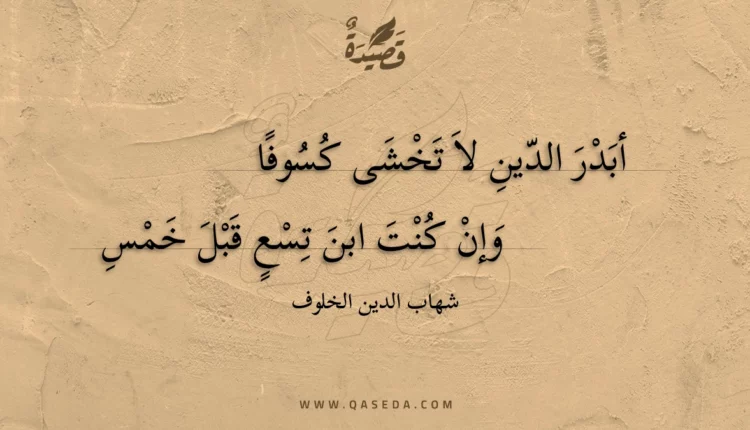 قَصِيدَةٌ
أبَدْرَ الدّينِ لاَ تَخْشَى كُسُوفًا
وَإنْ كُنْتَ ابنَ تِسْعٍ قَبْلَ خَمْسِ
شهاب الدين الخلوف
WWW.QASEDA.COM